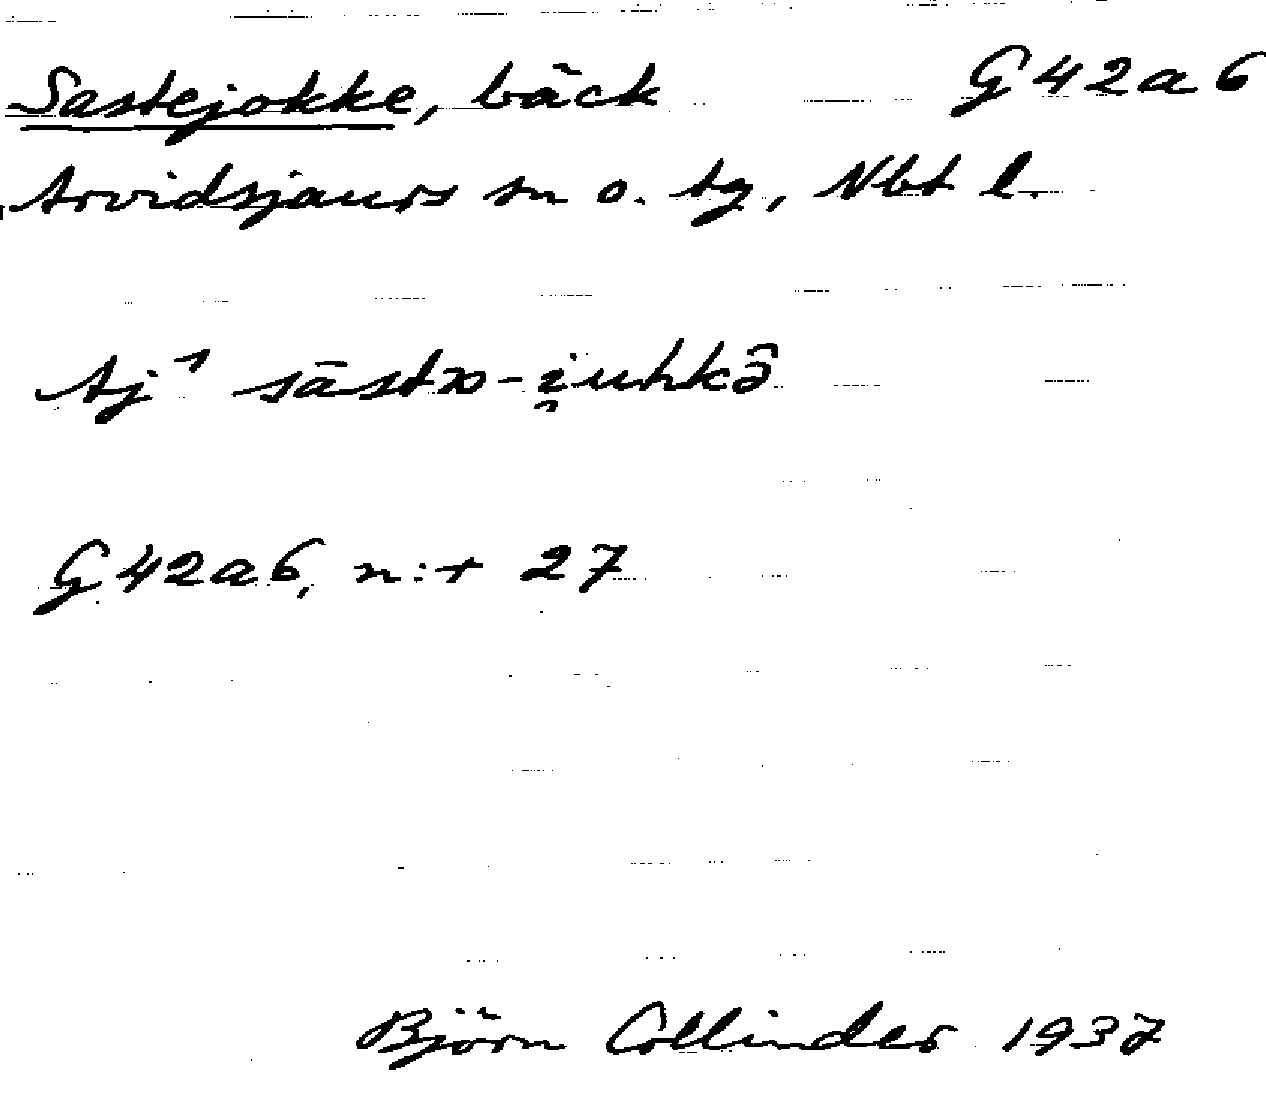 Sastejokke, bäck G42a6
Arvidsjaurs sn o. tg, Nbt l.
Aj¹
G42a6, n:r 27
Björn Collinder 1937